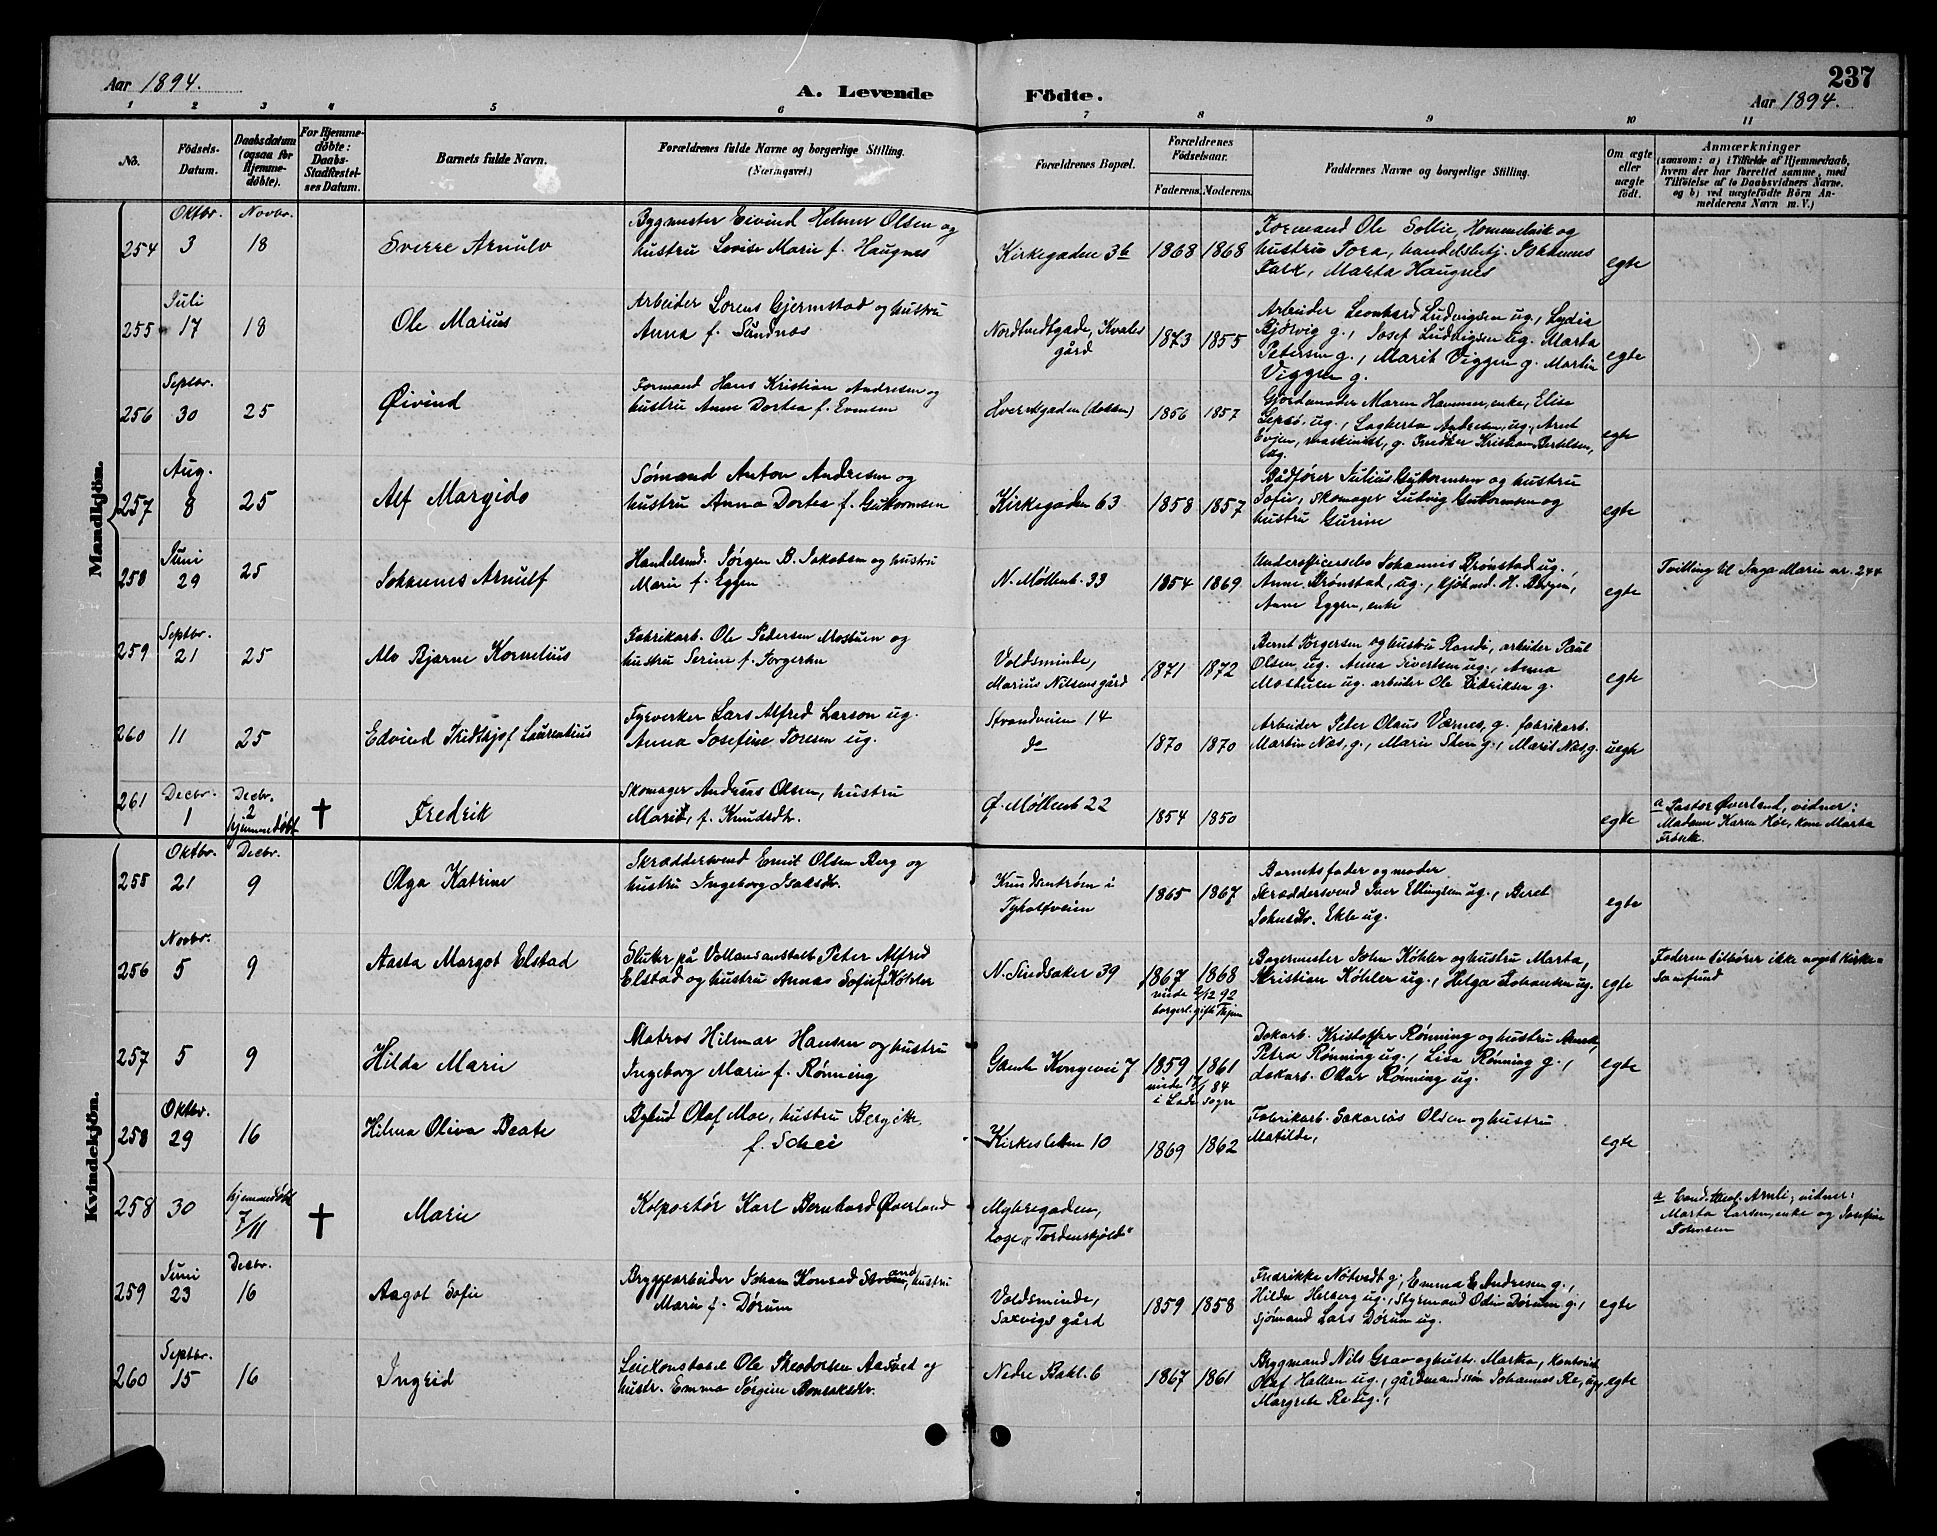 237
Aar 1894.
A. Levende
Födte.
Aar 1894.
1 2 3 4 5 6 7 8 9 10 11
No.
Födsels-
Datum.
Daabsdatum
(ogsaa for
Hjemme-
döbte).
For Hjemme-
döbte:
Daabs-
Stadfæstel-
ses Datum.
Barnets fulde Navn.
Forældrenes fulde Navne og borgerlige Stilling.
(Næringsvei.)
Forældrenes Bopæl.
Forældrenes
Födselsaar.
Faderens. Moderens.
Faddernes Navne og borgerlige Stilling.
Om ægte
eller
uægte
födt.
Anmærkninger
(saasom: a) i Tilfælde af Hjemmedaab,
hvem der har forrettet samme, med
Tilföielse af to Daabsvidners Navne,
og b) ved uægtefödte Börn An-
melderens Navn m. V.)
Mandkjön.
254
Oktbr.
3
Novbr.
18
Sverre Arnulv
Bygmester Eivind Helmer Olsen og
hustru Lovise Marie f. Haugnes
Kirkegaden 36
1868 1868
Formand Ole Sollie, Hommelvik og
hustru Tora, handelsbetj. Johannes
Falk, Marta Haugnes
egte
255
Juli
17
18
Ole Marius
Arbeider Lorens Gjermstad og hustru
Anna f. Sundnæs
Nordtvedtgade, Kvales
gård
1873 1855
Arbeider Leonhard Ludvigsen ug., Lydia
Bjørvig g., Josef Ludvigsen ug. Marta
Petersen g., Marit Viggen g. Martin
Viggen g.
egte
256
Septbr.
30
25
Øivind
Formand Hans Kristian Andresen og
hustru Anne Dortea f. Evensen
Hverksgaden (dokken)
1856 1857
Gjordemoder Maren Hammer, enke, Elise
Lepsø, ug., Lagberta Andresen, ug., Arnt
Evjen, maskinist, g. Snedker Kristian Bertelsen,
ug.
egte
257
Aug.
8
25
Alf Margido
Sømand Anton Andresen og
hustru Anna Dortea f. Guttormsen
Kirkegaden 63
1858 1857
Bådfører Julius Guttormsen og hustru
Sofie, Skomager Ludvig Guttormsen og
hustru Gurine
egte
258
Juni
29
25
Johannes Arnulf
Handelsmd. Jørgen B. Jakobsen og hustru
Marie f. Eggen
N. Møllenb. 33
1854 1869
Underofficerselev Johannes Brønstad ug.,
Anne Brønstad, ug., kjøbmd. H. Bergen,
Anne Eggen, enke
egte
Tvilling til Inga Marie nr. 244
259
Septbr.
21
25
Alv Bjarne Kornelius
Fabrikarb. Ole Pedersen Mostuen og
hustru Serine f. Torgersen
Voldsminde,
Marius Nilsens gård
1871 1872
Bernt Torgersen og hustru Randi, arbeider Paul
Olsen, ug. Anna Sivertsen ug., Anna
Mostuen ug. arbeider Ole Didriksen g.
egte
260
11
25
Edvind Fridthjof Laurentius
Fyrverker Lars Alfred Larson ug.
Anna Josefine Toresen ug.
Strandveien 14
do
1870 1870
Arbeider Peter Olaus Værnes, g. fabrikarb.
Martin Næs, g., Marie Sten g., Marit Næs, g.
uegte
261
Decbr.
1
Decbr.
2
hjemmedøbt
†
Fredrik
Skomager Andreas Olsen, hustru
Marit, f. Knudsdtr.
Ø. Møllenb 22
1854 1850
egte
a Pastor Øverland, vidner:
Madame Karen Høe, kone Marta
Frøseth.
Kvindekjön.
255
Oktbr.
21
Decbr.
9
Olga Katrine
Skræddersvend Ernst Olsen Berg og
hustru Ingeborg Isaksdtr.
Knudsentrøen i
Tyholtveien
1865 1867
Barnets fader og moder
Skræddersvend Iver Ellingsen ug., Beret
Johnsdtr. Ekle ug.
egte
256
Novbr.
5
9
Aasta Margot Elstad
Sluter på Vollansanstalt Peter Alfred
Elstad og hustru Annas Sofie f. Köhler
N. Sindsaker 39
1867 1868
viede 2/12 92
borgerl. gifte Thjem
Bagermester John Köhler og hustru Marta,
Kristian Köhler ug., Helga Johansen ug.
egte
Faderen tilhører ikke noget Kirke-
samfund
257
5
9
Hilda Marie
Matros Hilmar Hansen og hustru
Ingeborg Marie f. Rønning
Gamle Kongevei 7
1859 1861
viede 17/1 84
i Lade sogn
Dokarb. Kristoffer Rønning og hustru Anne,
Petra Rønning ug., Lisa Rønning g.,
dokarb. Oskar Rønning ug.
egte
258
Oktbr.
29
16
Hilma Oliva Beate
Bybud Olaf Moe, hustru Bergitte
f. Schei
Kirkesletten 10
1869 1862
Fabrikarb. Sakarias Olsen og hustru
Matilde,
egte
258
30
hjemmedøbt
7/11
†
Marie
Kolportør Karl Bernhard Øverland
Myhregaden,
loge „Tordenskjold"
a Cand. theol. Arnli, vidner:
Marta Larsen, enke og Josefine
Johnsen
259
Juni
23
Decbr.
16
Aagot Sofie
Bryggearbeider Johan Konrad Strand, hustru
Marie f. Dørum
Voldsminde,
Saxvigs gård
1859 1858
Fredrikke Nötvedt g., Emma E. Andresen g.,
Hilda Helberg ug., Styrmand Odin Dørum g.,
Sjømand Lars Dørum ug.
egte
260
Septbr.
15
16
Ingrid
Leiekonstabel Ole Theodorsen Aasvet og
hustr. Emma Jørgine Bonsaksdtr.
Nedre Bakl. 6
1867 1861
Bryggmand Nils Grav og hustr. Marta, Kontorist
Olaf Hallan ug., gårdmandssøn Johannes Re, ug.
Margrete Re ug.,
egte